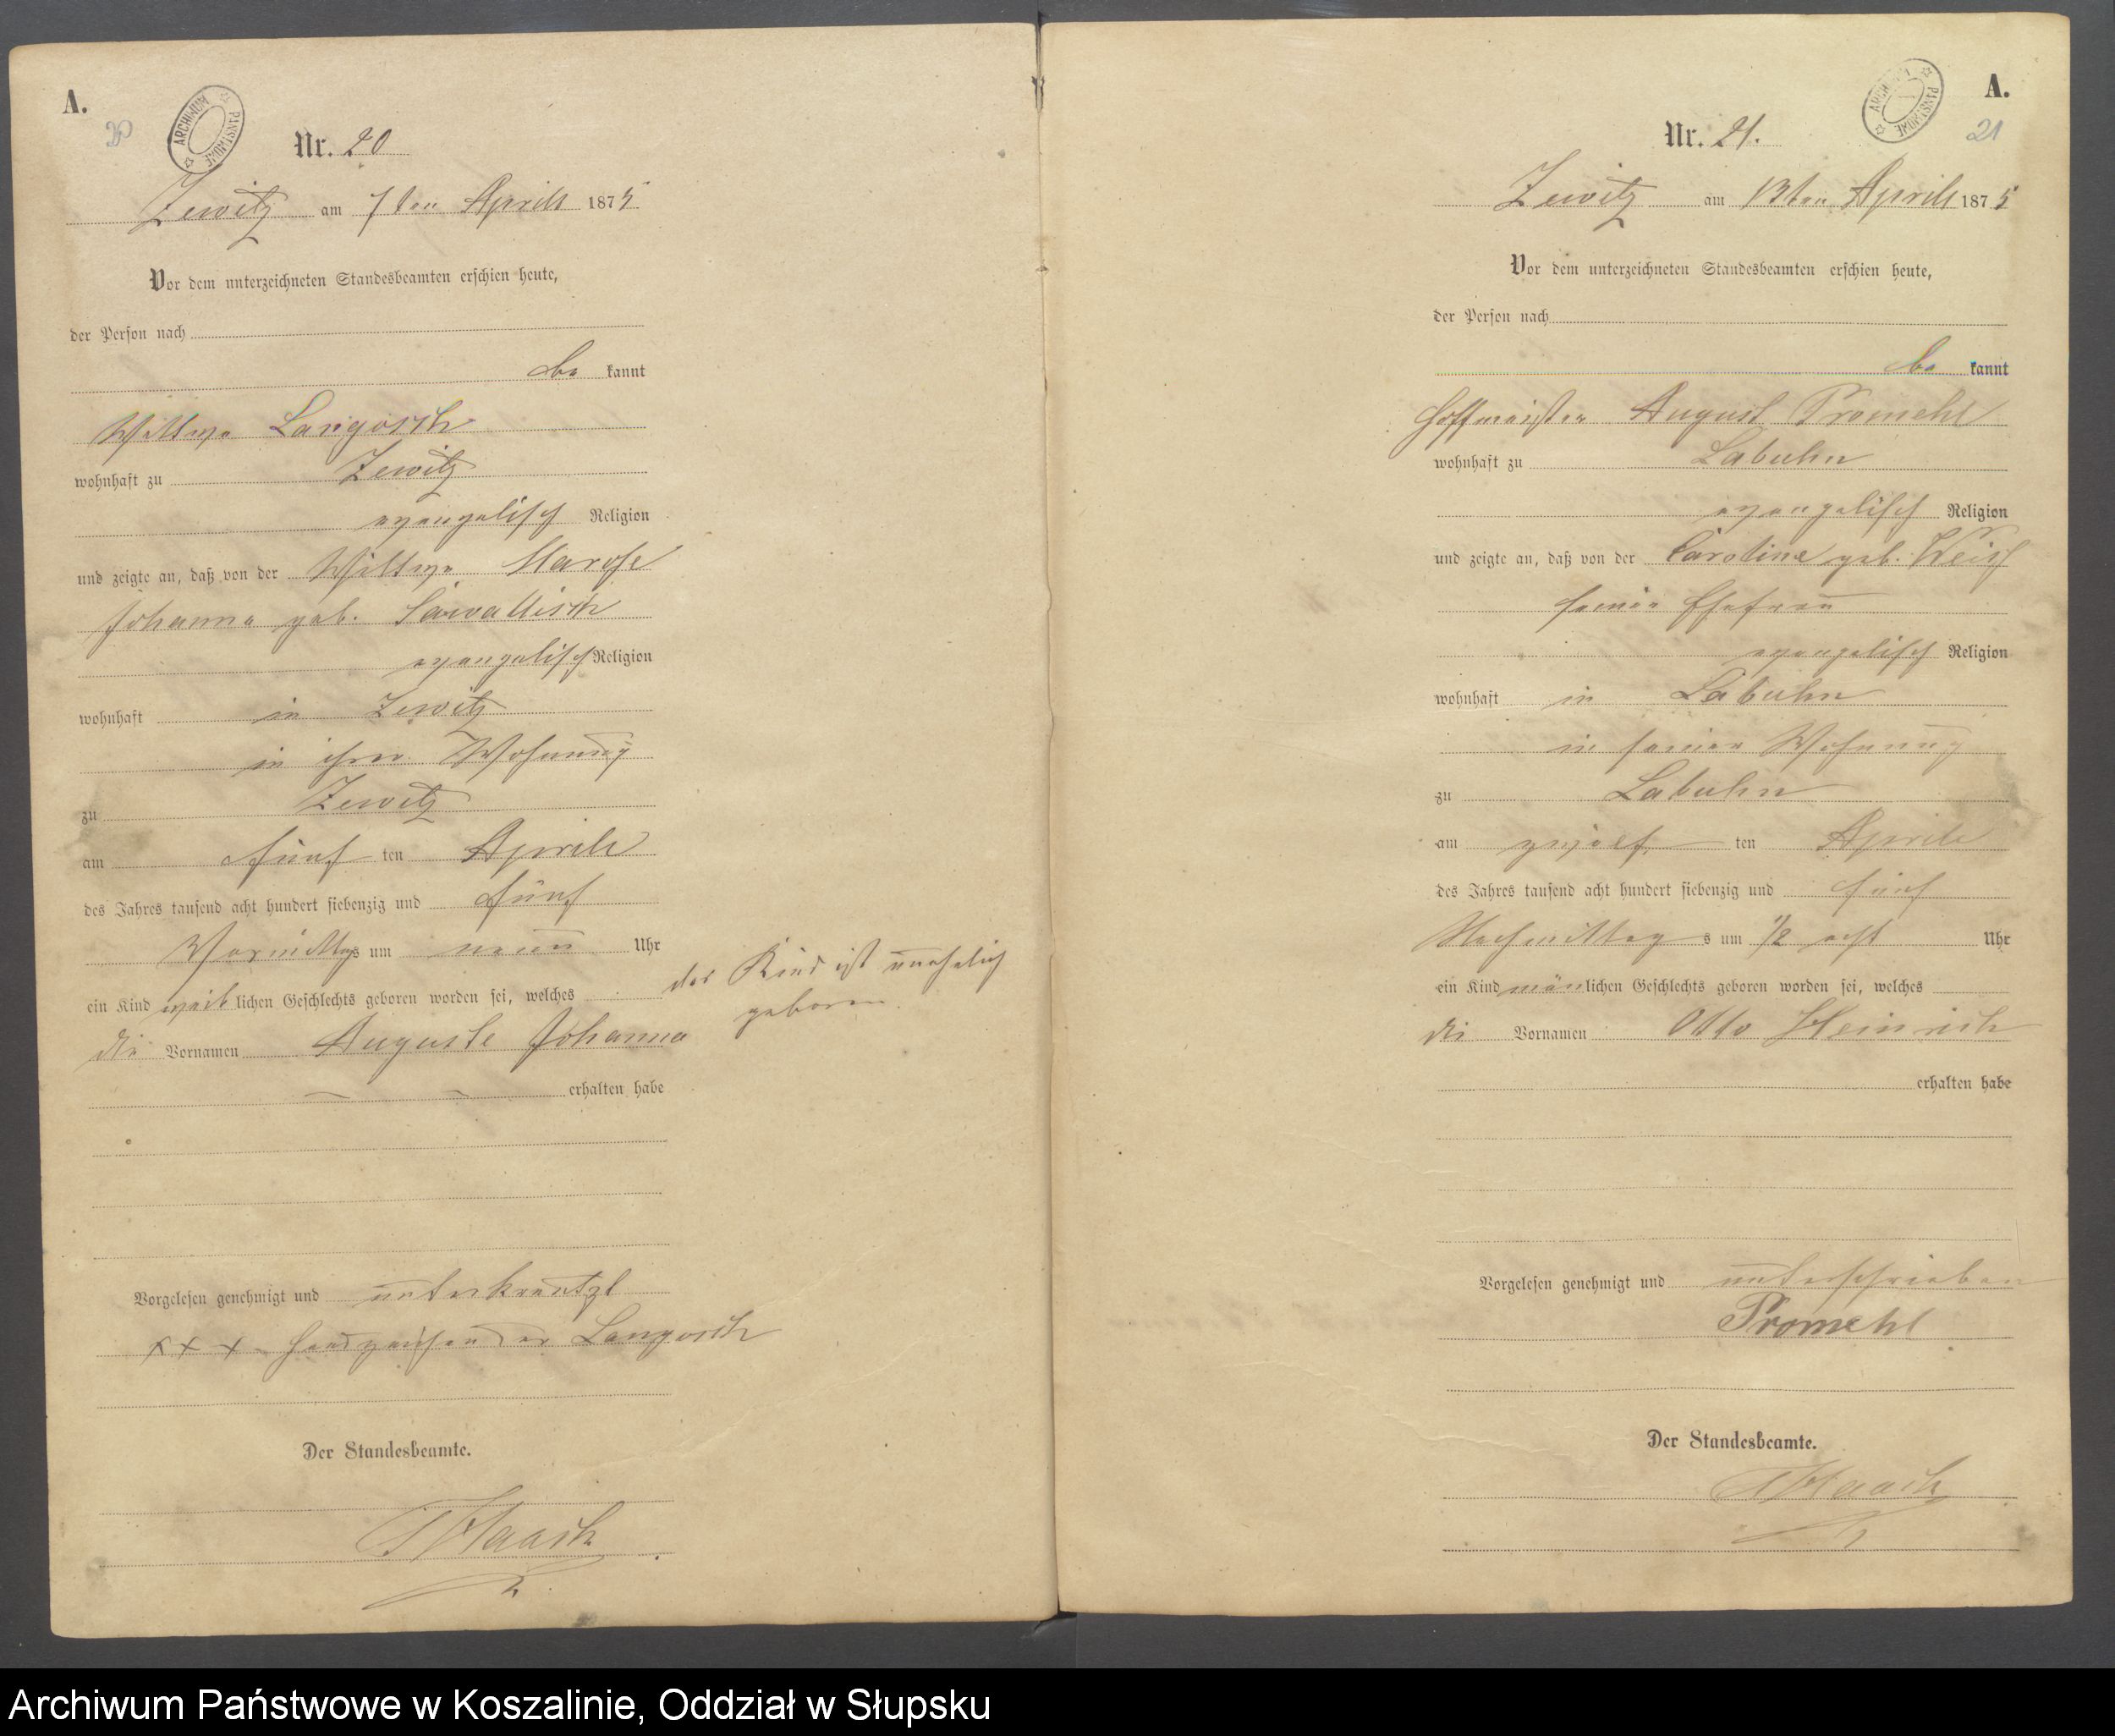 A.
20
ARCHIWUM PAŃSTWOWE
Nr. 20
Zewitz am 7ten Aprill 1875
Vor dem unterzeichneten Standesbeamten erschien heute,
der Person nach
be kannt
Wittwe Langosch
wohnhaft zu Zewitz
evangelisch Religion
und zeigte an, daß von der Wittwe
Johanna geb.
evangelisch Religion
wohnhaft in Zewitz
in ihrer Wohnung
zu Zewitz
am fünf ten Aprill
des Jahres tausend acht hundert siebenzig und fünf
Vormittgs um neun Uhr
ein Kind weib lichen Geschlechts geboren worden sei, welches
das Kind ist unehelich
geboren.
die Vornamen Auguste Johanna
erhalten habe
Vorgelesen genehmigt und unterkreutzt
xxx Handzeichen der Langosch
Der Standesbeamte.
Haack
A.
21
ARCHIWUM PAŃSTWOWE
Nr. 21.
Zewitz am 13ten Aprill 1875
Vor dem unterzeichneten Standesbeamten erschien heute,
der Person nach
be kannt
Hoffmeister August Promehl
wohnhaft zu Labuhn
evangelisch Religion
und zeigte an, daß von der Caroline geb.
seiner Ehefrau
evangelisch Religion
wohnhaft in Labuhn
in seiner Wohnung
zu Labuhn
am zwölf ten Aprill
des Jahres tausend acht hundert siebenzig und fünf
Nachmittag s um 1/2 acht Uhr
ein Kind män lichen Geschlechts geboren worden sei, welches
die Vornamen Otto Heinrich
erhalten habe
Vorgelesen genehmigt und unterschrieben
Promehl
Der Standesbeamte.
Haack
Archiwum Państwowe w Koszalinie, Oddział w Słupsku